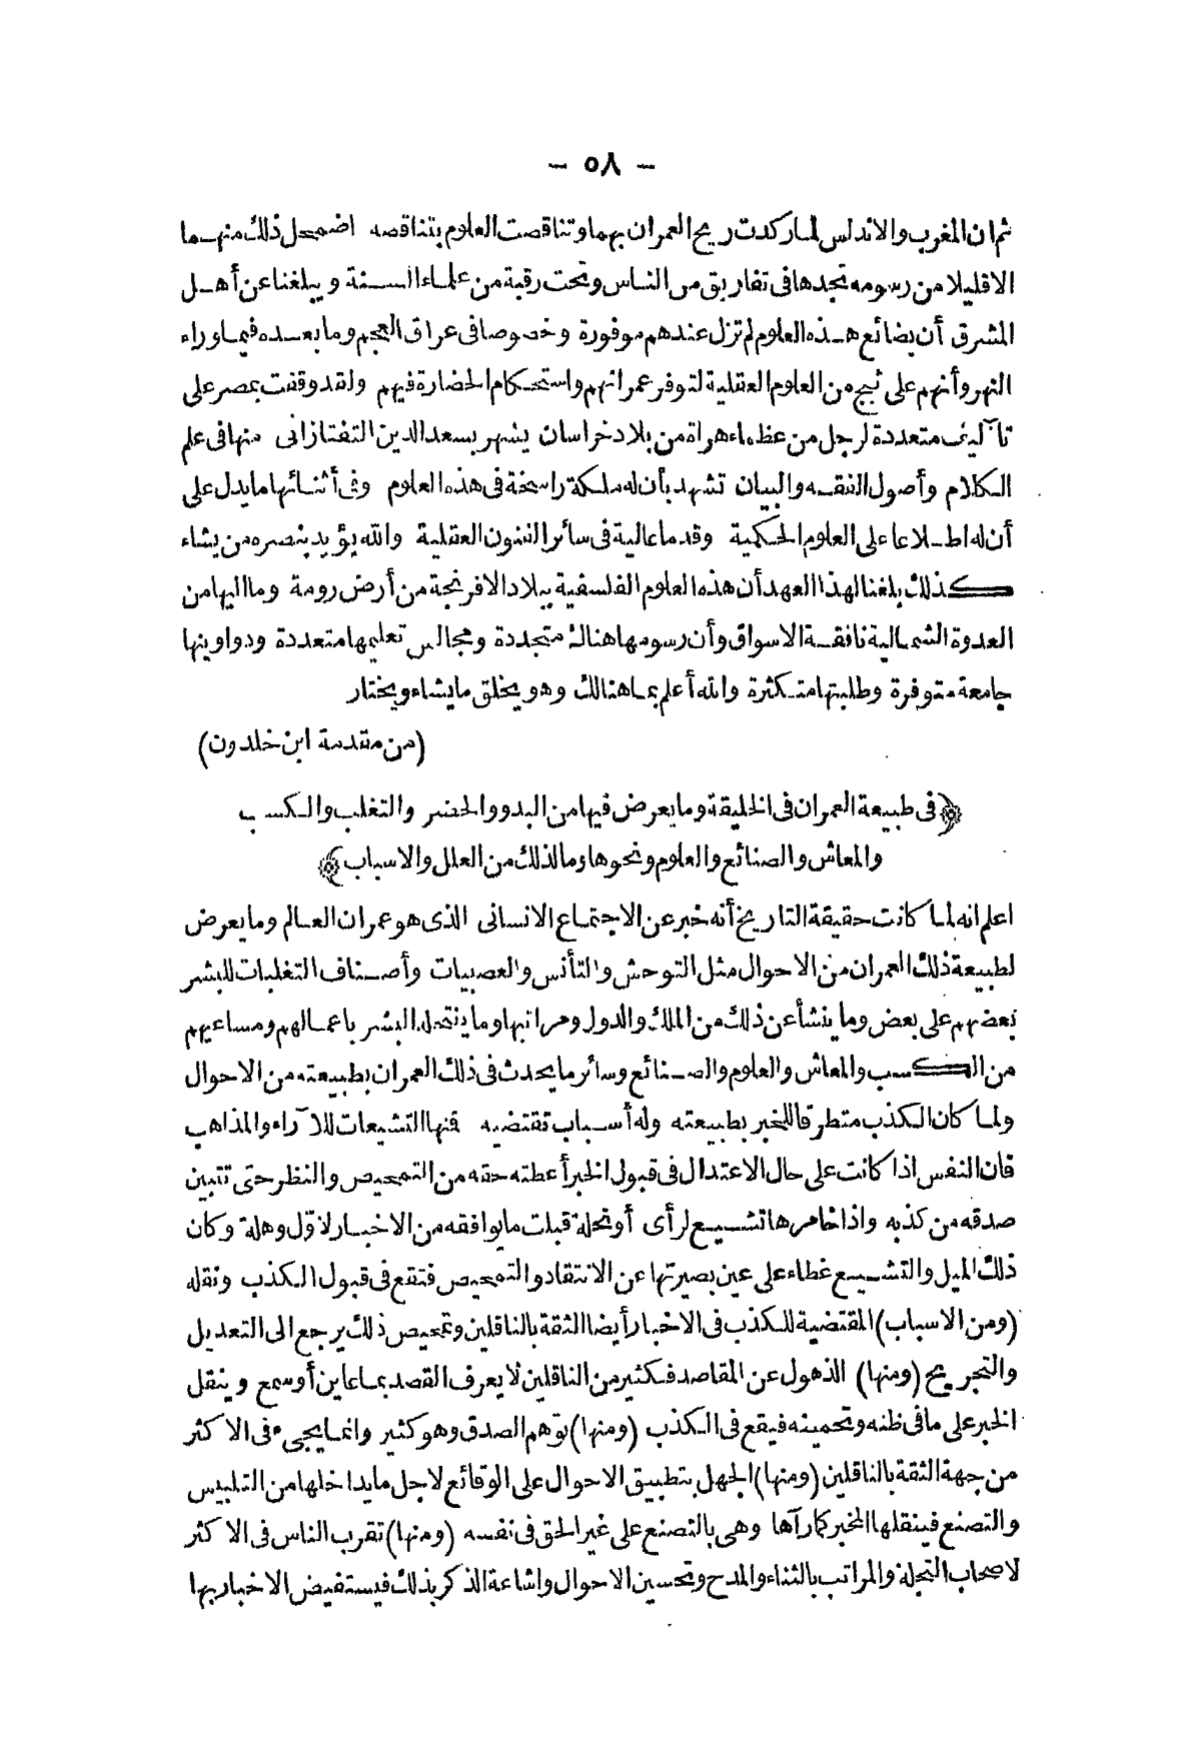 - ٥٨ -
ثم ان المغرب والاندلس لما ركدت ريح العمران بهما وتناقصت العلوم بتناقصه اضمحل ذلك منهما
الا قليلا من رسومه تجدها فى تفاريق من الناس وتحت رقبة من علماء السنة ويبلغنا عن أهل
المشرق أن بضائع هذه العلوم لم تزل عندهم موفورة وخصوصا فى عراق العجم وما بعده فيما وراء
النهر وأنهم على ثبج من العلوم العقلية لتوفر عمرانهم واستحكام الحضارة فيهم ولقد وقفت بمصر على
تآليف متعددة لرجل من عظماء هراة من بلاد خراسان يشهر بسعد الدين التفتازانى منها فى علم
الكلام وأصول الفقه والبيان تشهد بأن له ملكة راسخة فى هذه العلوم وفى أثنائها ما يدل على
أن له اطلاعا على العلوم الحكمية وقدما عالية فى سائر الفنون العقلية والله يؤيد بنصره من يشاء
كذلك بلغنا لهذا العهد أن هذه العلوم الفلسفية ببلاد الافرنجة من أرض رومة وما اليها من
العدوة الشمالية نافقة الاسواق وأن رسومها هناك متجددة ومجالس تعليمها متعددة ودواوينها
جامعة متوفرة وطلبتها متكثرة والله أعلم بما هنالك وهو يخلق ما يشاء ويختار
(من مقدمة ابن خلدون)
﴿فى طبيعة العمران فى الخليقة وما يعرض فيها من البدو والحضر والتغلب والكسب
والمعاش والصنائع والعلوم ونحوها وما لذلك من العلل والاسباب﴾
اعلم انه لما كانت حقيقة التاريخ أنه خبر عن الاجتماع الانسانى الذى هو عمران العالم وما يعرض
لطبيعة ذلك العمران من الاحوال مثل التوحش والتأنس والعصبيات وأصناف التغلبات للبشر
بعضهم على بعض وما ينشأ عن ذلك من الملك والدول ومراتبها وما ينتحله البشر باعمالهم ومساعيهم
من الكسب والمعاش والعلوم والصنائع وسائر ما يحدث فى ذلك العمران بطبيعته من الاحوال
ولما كان الكذب متطرقا للخبر بطبيعته وله أسباب تقتضيه فمنها التشيعات للآراء والمذاهب
فان النفس اذا كانت على حال الاعتدال فى قبول الخبر أعطته حقه من التمحيص والنظر حتى تتبين
صدقه من كذبه واذا خامرها تشيع لرأى أو نحلة قبلت ما يوافقه من الاخبار لاوّل وهلة وكان
ذلك الميل والتشيع غطاء على عين بصيرتها عن الانتقاد والتمحيص فتقع فى قبول الكذب ونقله
(ومن الاسباب) المقتضية للكذب فى الاخبار أيضا الثقة بالناقلين وتمحيص ذلك يرجع الى التعديل
والتجريح (ومنها) الذهول عن المقاصد فكثير من الناقلين لا يعرف القصد بما عاين أو سمع وينقل
الخبر على ما فى ظنه وتخمينه فيقع فى الكذب (ومنها) توّهم الصدق وهو كثير وانما يجىء فى الاكثر
من جهة الثقة بالناقلين (ومنها) الجهل بتطبيق الاحوال على الوقائع لاجل ما يداخلها من التلبيس
والتصنع فينقلها المخبر كما رآها وهى بالتصنع على غير الحق فى نفسه (ومنها) تقرب الناس فى الاكثر
لاصحاب التجلة والمراتب بالثناء والمدح وتحسين الاحوال واشاعة الذكر بذلك فيستفيض الاخبار بها